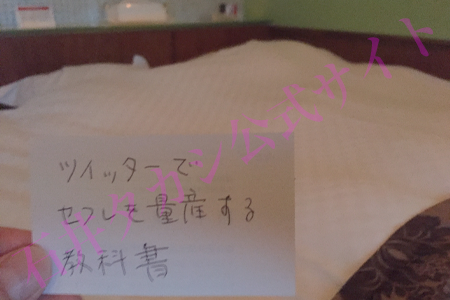 ツイッターで
セフレを量産する
教科書
タカシ公式サイト